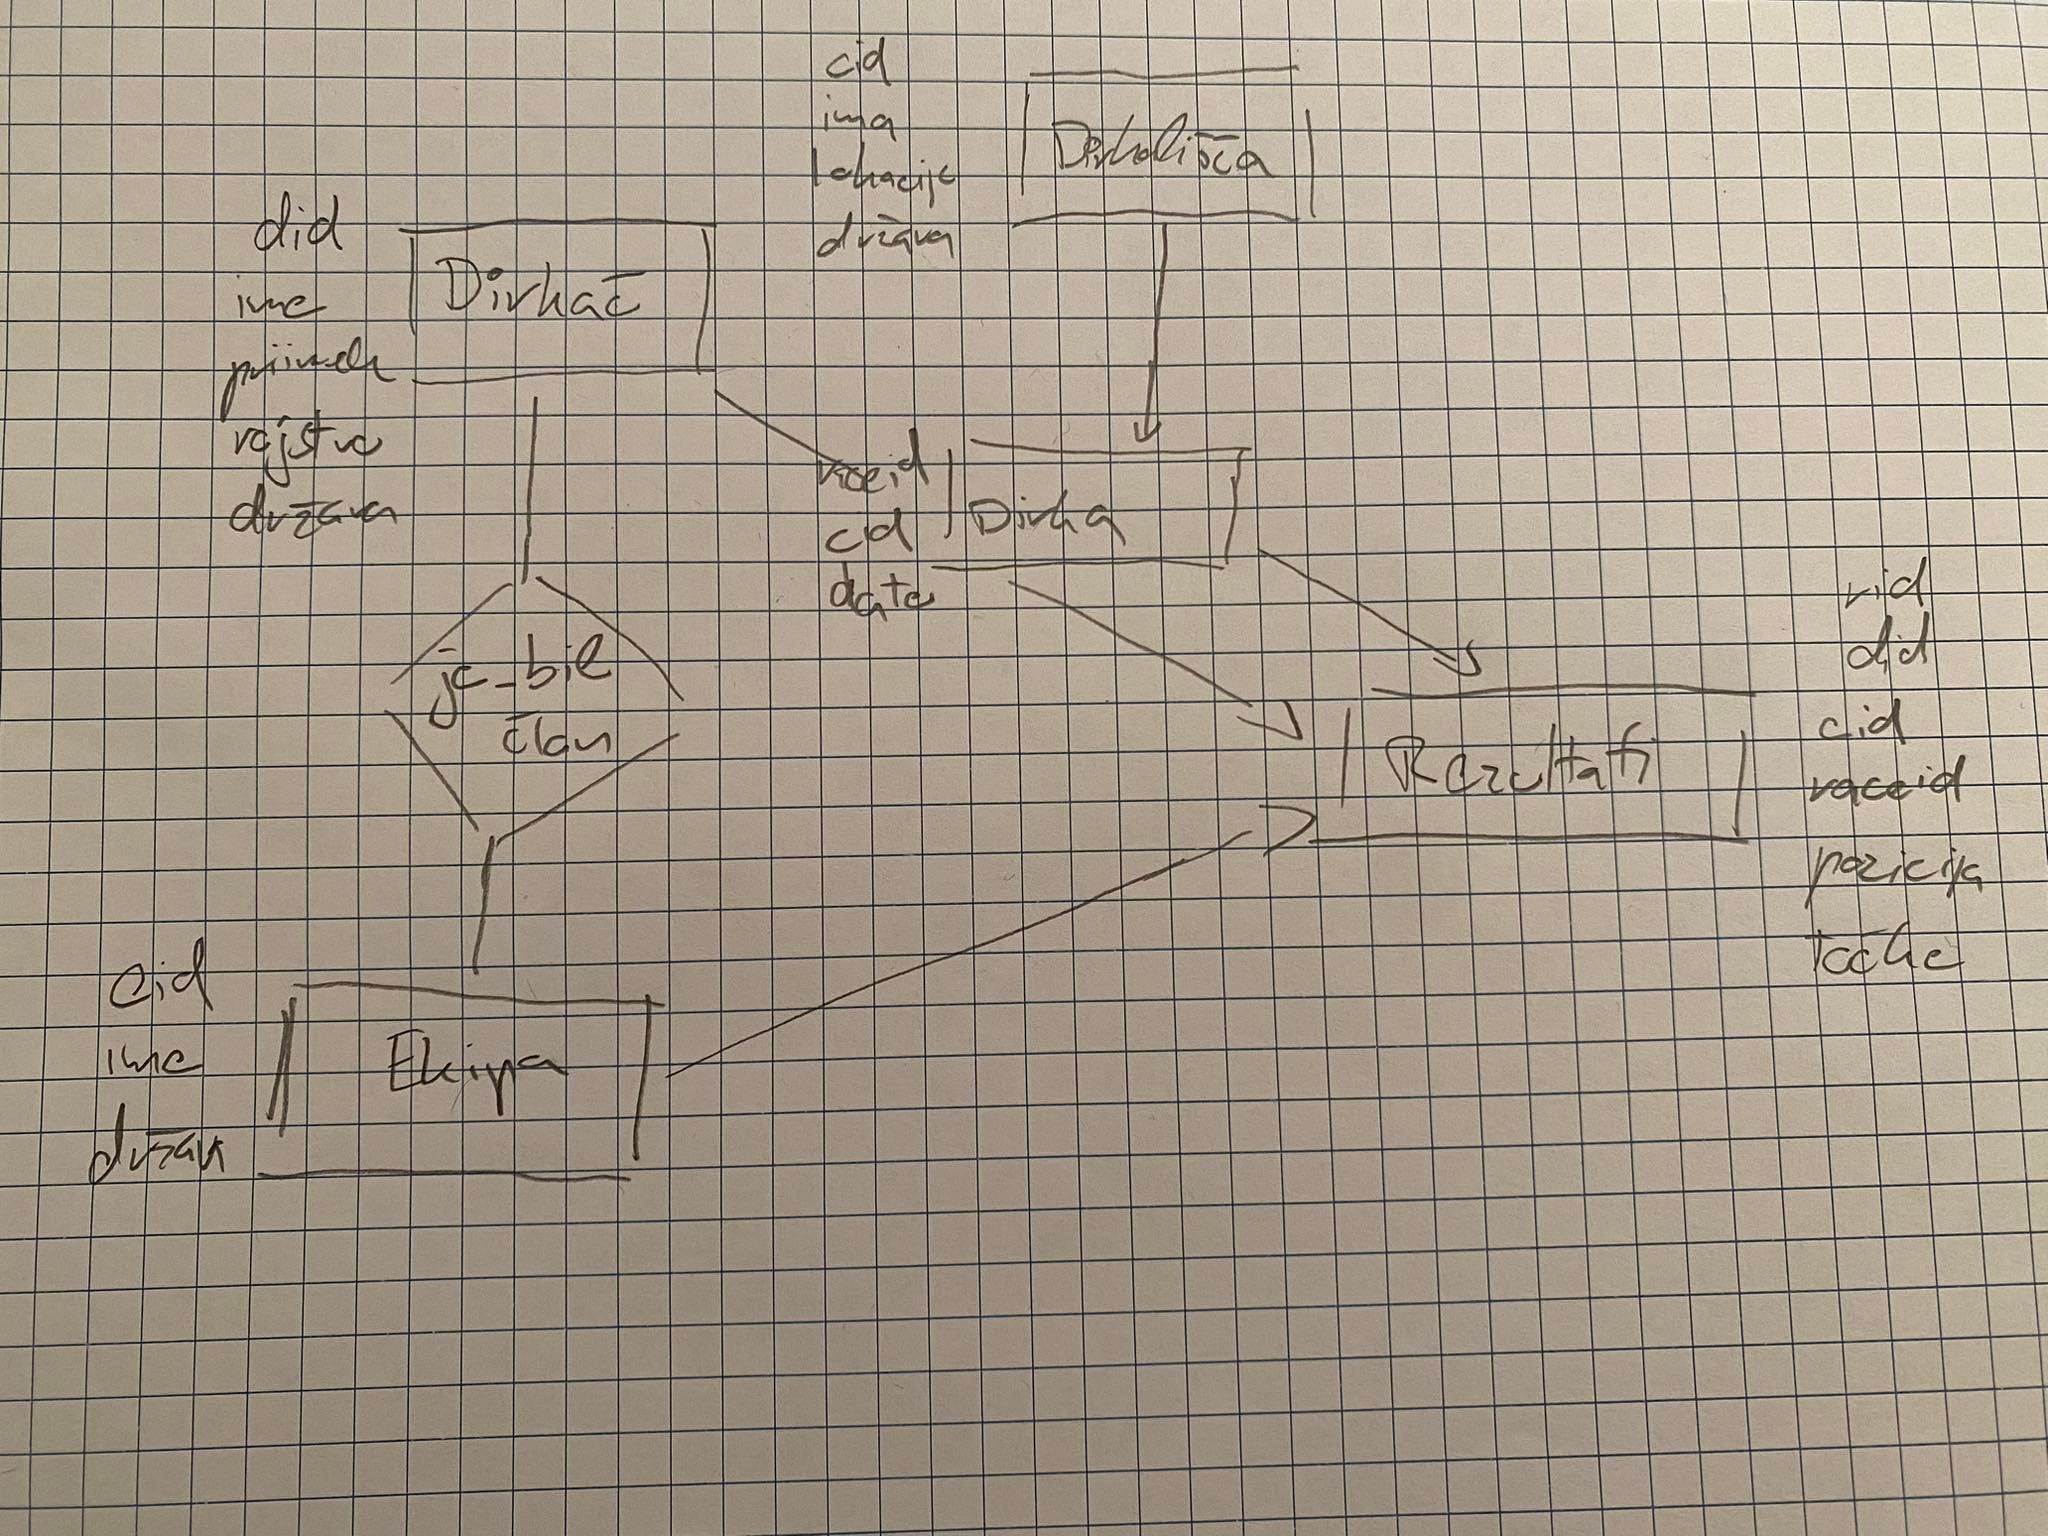 cid
ima
lokacije
država
Dirkališča
did
ime
priimek
rojstvo
država
Dirkač
raceid
cid
date
Dirka
je_bil
član
rid
did
cid
raceid
pozicija
točke
Rezultati
eid
ime
držav
Ekipa